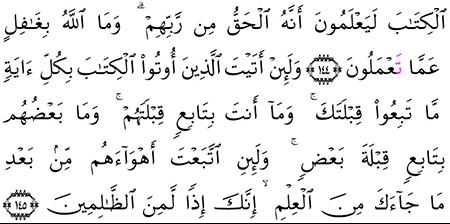 ٱلْكِتَٰبَ لَيَعْلَمُونَ أَنَّهُ ٱلْحَقُّ مِن رَّبِّهِمْ ۗ وَمَا ٱللَّهُ بِغَٰفِلٍ
عَمَّا تَعْمَلُونَ ﴿١٤٤﴾ وَلَئِنْ أَتَيْتَ ٱلَّذِينَ أُوتُوا۟ ٱلْكِتَٰبَ بِكُلِّ ءَايَةٍ
مَّا تَبِعُوا۟ قِبْلَتَكَ ۚ وَمَآ أَنتَ بِتَابِعٍ قِبْلَتَهُمْ ۚ وَمَا بَعْضُهُم
بِتَابِعٍ قِبْلَةَ بَعْضٍ ۚ وَلَئِنِ ٱتَّبَعْتَ أَهْوَآءَهُم مِّنۢ بَعْدِ
مَا جَآءَكَ مِنَ ٱلْعِلْمِ ۙ إِنَّكَ إِذًا لَّمِنَ ٱلظَّٰلِمِينَ ﴿١٤٥﴾